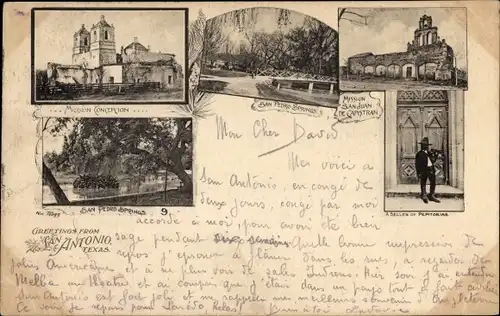 MISSION CONCEPTION
SAN PEDRO SPRINGS
MISSION SAN JUAN DE CAPISTRAN
SAN PEDRO SPRINGS 9.
A SELLER OF PEPITORIAS.
GREETINGS FROM
SAN ANTONIO,
TEXAS.
Mon Cher David
Me voici à
San Antonio, en congé de
deux jours, congé par moi
accordé à moi, pour avoir été bien
sage pendant deux semaines. Quelle bonne impression de
repos j'éprouve à flâner dans les rues, à regarder de
jolies Américaines et à ne plus voir de sales Indiens. Hier soir j'ai entendu
Melba au théâtre et ai compris que j'étais dans un pays tout à fait civilisé
San Antonio est fort joli et me rappelle mes meilleurs souvenirs d'Angleterre
Ce soir je repars pour Laredo hélas! Bien à toi